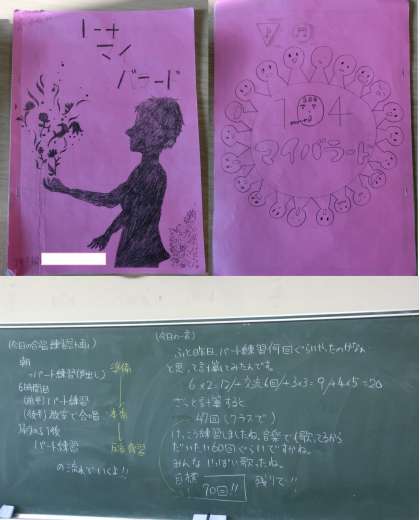 トーキナ
マイ
バラード
104
マイバラード
(今日の合唱練習計画)
朝
→パート練習(仕出し)
6時間目
(前半)パート練習
(後半)教室で合唱
帰りの会後
パート練習
の流れでいくよ!!
準備
本番
反省・復習
(今日の一言)
ふと昨日、パート練習何回ぐらいやったのかなぁ
と思って計算してみたんです。
6×2=12/+交流6回/+3×3=9/+4×5=20
ざっと計算すると
47回(クラスで)
けっこう練習しましたね。音楽でも歌ってるから
だいたい60回ぐらいですかね。
みんないっぱい歌ったね。
目標 70回!! 残りで!!